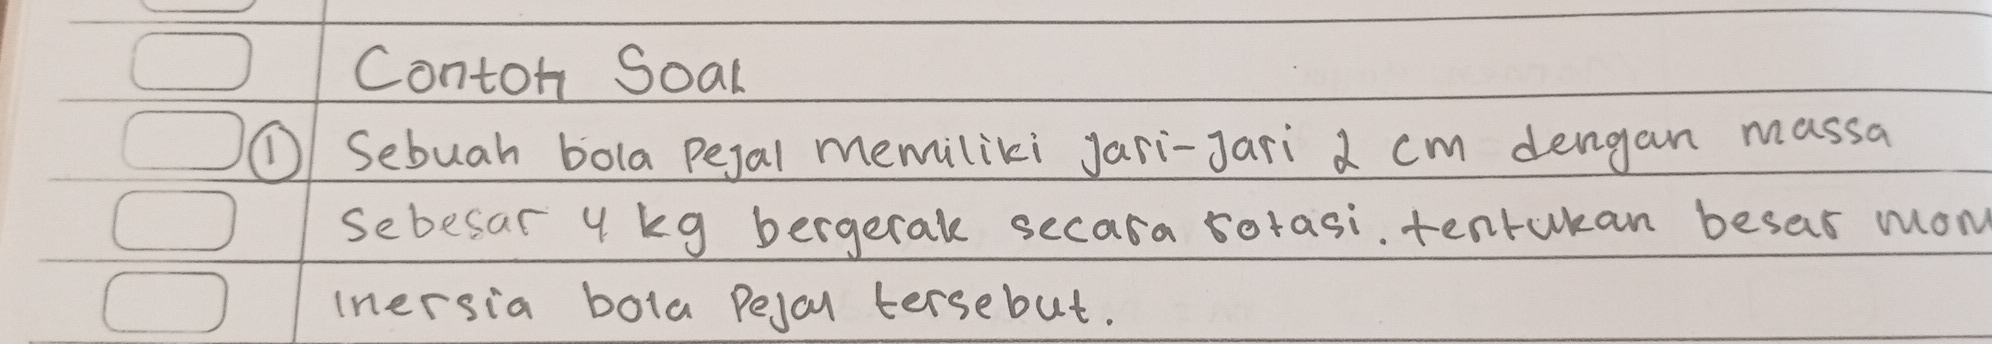 Contoh Soal
① Sebuah bola pejal memiliki jari-jari 2 cm dengan massa
sebesar 4 kg bergerak secara rotasi. tentukan besar mom
inersia bola pejal tersebut.